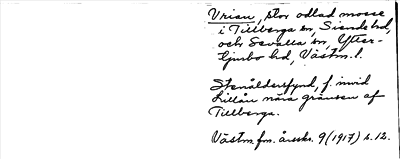 Vrien, stor odlad mosse
i Tillberga sn, Siende hd,
och Sevalla sn, Yfter-
tjurbo hd, Västm. l.
Stenåldersfynd, f. invid
Lillån nära gränsen af
Tillberga.
Västm. fm. årsskr. 9 (1917) s. 12.